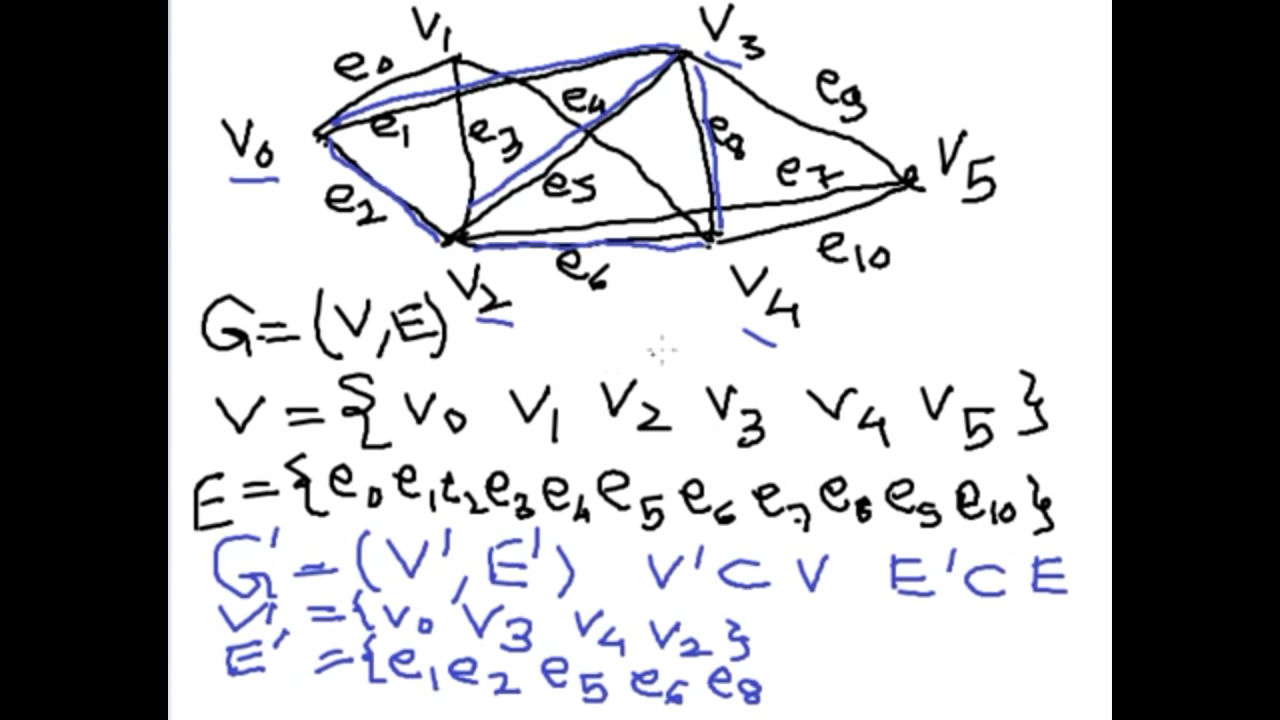 V1 V3
e0 e9
e4
V0 e1 e3 e8 V5
e7
e2 e5
e10
e6
V2 V4
G=(V,E)
V={v0 v1 v2 v3 v4 v5}
E={e0 e1 e2 e3 e4 e5 e6 e7 e8 e9 e10}
G'=(V',E') V'⊂V E'⊂E
V'={v0 v3 v4 v2}
E'={e1 e2 e5 e6 e8